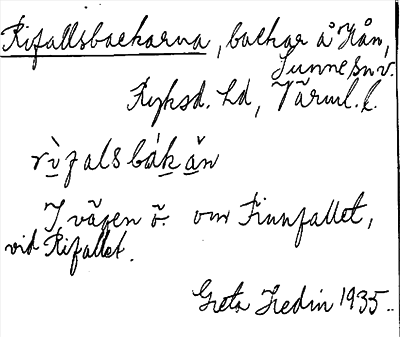 Rifallsbackarna, backar å Hån,
Sunne sn. v.
Fryksd. hd, Värml. l.
rìfals bák ån
I vägen ö. om Finnfallet,
vid Rifallet.
Greta Hedin 1935.